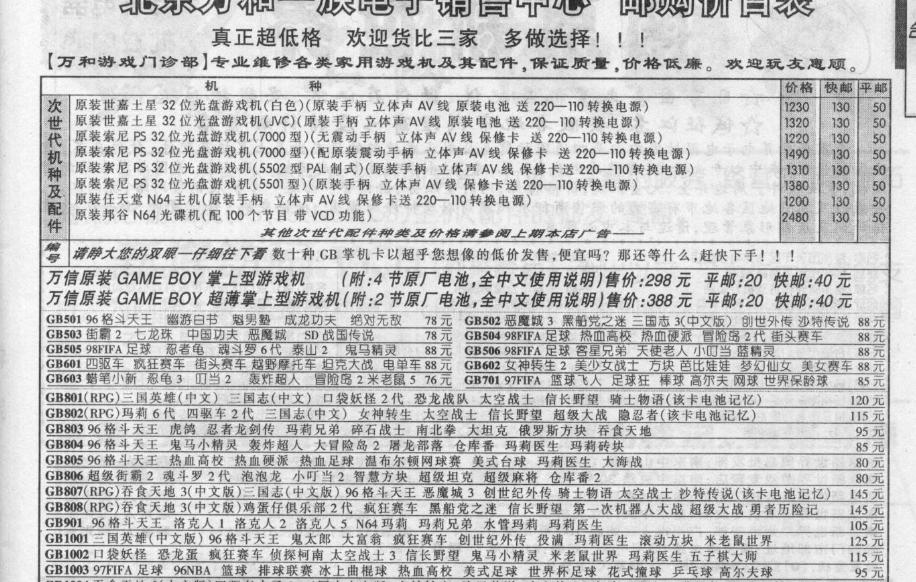 北京万和一族电子销售中心 邮购价目表
真正超低格 欢迎货比三家 多做选择!!!
【万和游戏门诊部】专业维修各类家用游戏机及其配件,保证质量,价格低廉。欢迎玩友惠顾。
机 种 价格 快邮 平邮
次世代机种及配件
原装世嘉土星 32 位光盘游戏机(白色)(原装手柄 立体声 AV 线 原装电池 送 220—110 转换电源) 1230 130 50
原装世嘉土星 32 位光盘游戏机(JVC)(原装手柄 立体声 AV 线 原装电池 送 220—110 转换电源) 1320 130 50
原装索尼 PS 32 位光盘游戏机(7000 型)(无震动手柄 立体声 AV 线 保修卡 送 220—110 转换电源) 1220 130 50
原装索尼 PS 32 位光盘游戏机(7000 型)(配原装震动手柄 立体声 AV 线 保修卡 送 220—110 转换电源) 1490 130 50
原装索尼 PS 32 位光盘游戏机(5502 型 PAL 制式)(原装手柄 立体声 AV 线 保修卡送 220—110 转换电源) 1310 130 50
原装索尼 PS 32 位光盘游戏机(5501 型)(原装手柄 立体声 AV 线 保修卡送 220—110 转换电源) 1380 130 50
原装任天堂 N64 主机(原装手柄 立体声 AV 线 保修卡送 220—110 转换电源) 1200 130 50
原装邦谷 N64 光碟机(配 100 个节目 带 VCD 功能) 2480 130 50
其他次世代配件种类及价格请参阅上期本店广告
编号 请睁大您的双眼一仔细往下看 数十种 GB 掌机卡以超乎您想像的低价发售,便宜吗? 那还等什么,赶快下手!!!
万信原装 GAME BOY 掌上型游戏机 (附:4 节原厂电池,全中文使用说明)售价:298 元 平邮:20 快邮:40 元
万信原装 GAME BOY 超薄掌上型游戏机(附:2 节原厂电池,全中文使用说明)售价:388 元 平邮:20 快邮:40 元
GB501 96 格斗天王 幽游白书 魁男塾 成龙功夫 绝对无敌 78 元
GB502 恶魔城 3 黑船党之迷 三国志 3(中文版) 创世外传 沙特传说 88 元
GB503 街霸 2 七龙珠 中国功夫 恶魔城 SD 战国传说 78 元
GB504 98FIFA 足球 热血高校 热血硬派 冒险岛 2 代 街头赛车 88 元
GB505 98FIFA 足球 忍者龟 魂斗罗 6 代 泰山 2 鬼马精灵 88 元
GB506 98FIFA 足球 客星兄弟 天使老人 小叮当 蓝精灵 88 元
GB601 四驱车 疯狂赛车 街头赛车 越野摩托车 坦克大战 电单车 88 元
GB602 女神转生 2 美少女战士 方块 芭比娃娃 梦幻仙女 美女赛车 88 元
GB603 蜡笔小新 忍龟 3 叮当 2 轰炸超人 冒险岛 2 米老鼠 5 76 元
GB701 97FIFA 篮球飞人 足球狂 棒球 高尔夫 网球 世界保龄球 85 元
GB801(RPG)三国英雄(中文) 三国志(中文) 口袋妖怪 2 代 恐龙战队 太空战士 信长野望 骑士物语(该卡电池记忆) 120 元
GB802(RPG)玛莉 6 代 四驱车 2 代 三国志(中文) 女神转生 太空战士 信长野望 超级大战 隐忍者(该卡电池记忆) 115 元
GB803 96 格斗天王 虎鸽 忍者龙剑传 玛莉兄弟 碎石战士 南北拳 大坦克 俄罗斯方块 吞食天地 95 元
GB804 96 格斗天王 鬼马小精灵 轰炸超人 大冒险岛 2 屠龙部落 仓库番 玛莉医生 玛莉砖块 85 元
GB805 96 格斗天王 热血高校 热血硬派 热血足球 温布尔顿网球赛 美式台球 玛莉医生 大海战 80 元
GB806 超级街霸 2 魂斗罗 2 代 泡泡龙 小叮当 2 智慧方块 超级坦克 超级麻将 仓库番 2 80 元
GB807(RPG)吞食天地 3(中文版)三国志(中文版) 96 格斗天王 恶魔城 3 创世纪外传 骑士物语 太空战士 沙特传说(该卡电池记忆) 145 元
GB808(RPG)吞食天地 3(中文版)鸡蛋仔俱乐部 2 代 疯狂赛车 黑船党之迷 信长野望 第一次机器人大战 超级大战 勇者历险记 145 元
GB901 96 格斗天王 洛克人 1 洛克人 2 洛克人 5 N64 玛莉 玛莉兄弟 水管玛莉 玛莉医生 105 元
GB1001 三国英雄(中文版) 96 格斗天王 鬼太郎 大富翁 疯狂赛车 创世纪外传 役满 玛莉医生 滚动方块 米老鼠世界 125 元
GB1002 口袋妖怪 恐龙蛋 疯狂赛车 侦探柯南 太空战士 3 信长野望 鬼马小精灵 米老鼠世界 玛莉医生 五子棋大师 115 元
GB1003 97FIFA 足球 96NBA 篮球 排球联赛 冰上曲棍球 热血高校 美式足球 世界杯足球 花式撞球 乒乓球 高尔夫球 95 元